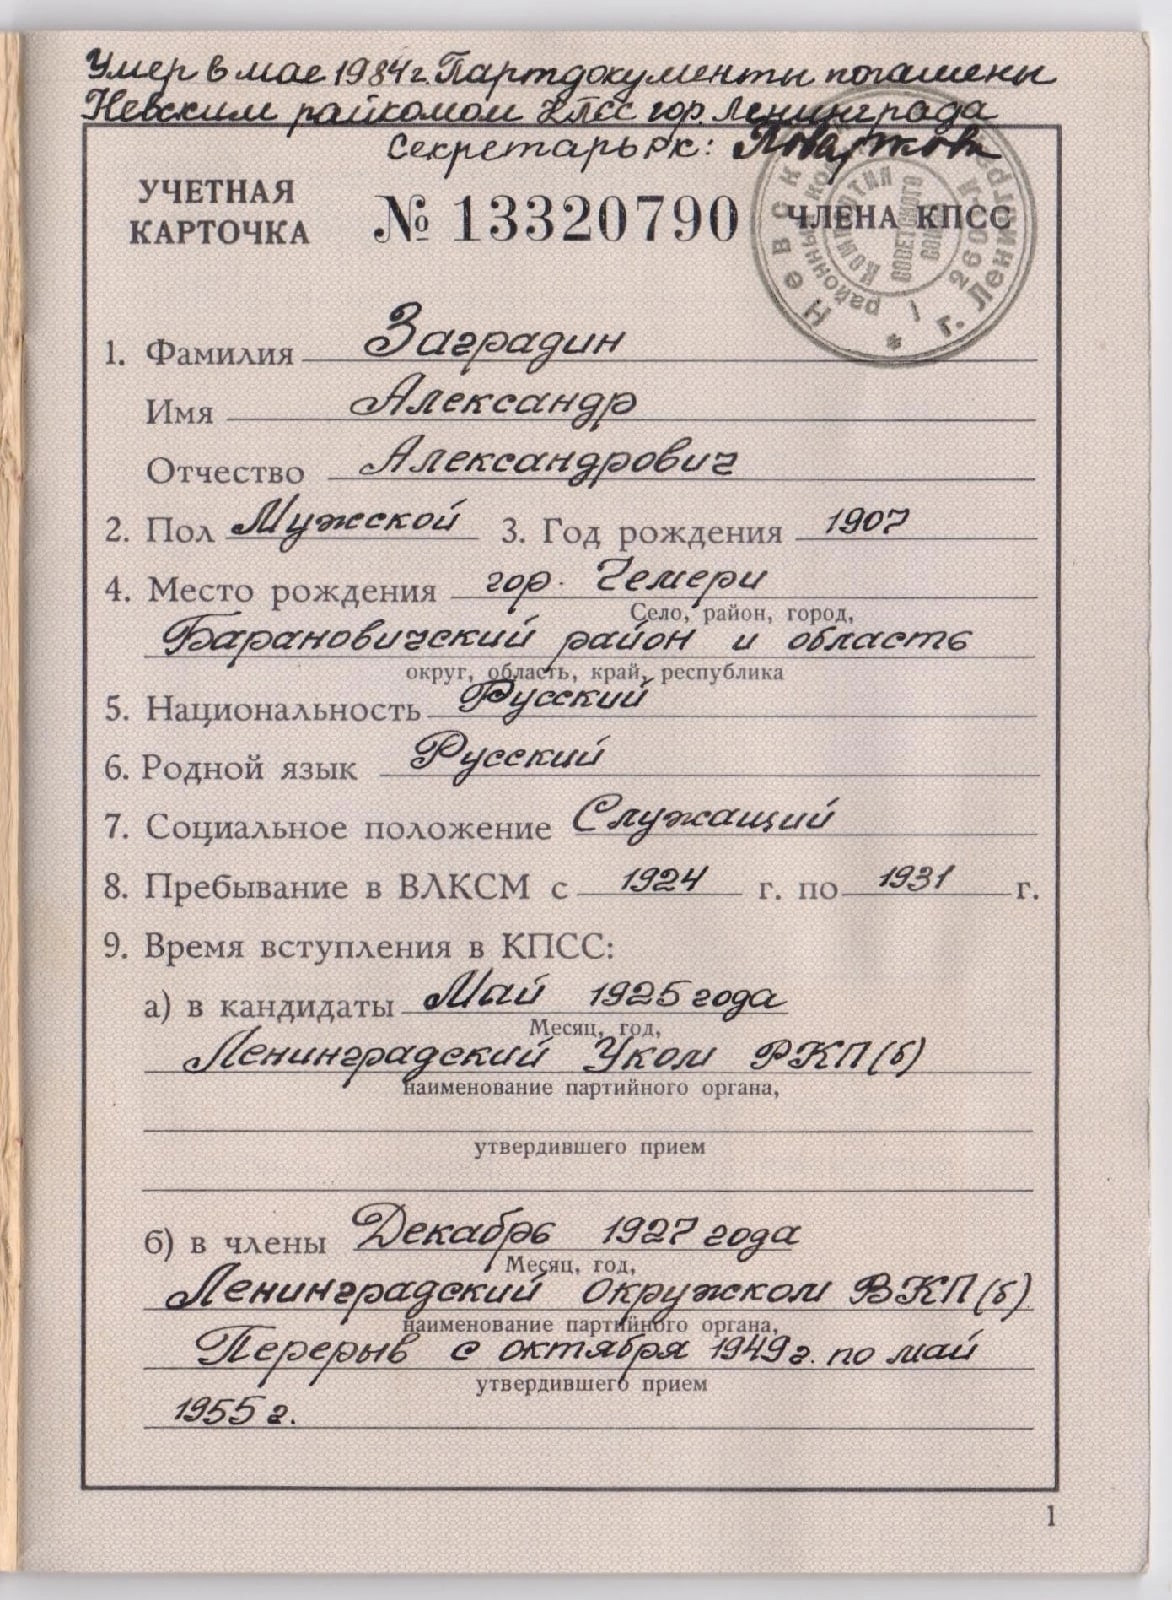 Умер в мае 1984 г. Партдокументы погашены
Невским райкомом КПСС гор. Ленинграда
Секретарь РК:
УЧЕТНАЯ КАРТОЧКА № 13320790 ЧЛЕНА КПСС
Невский районный комитет
Коммунистия Советского Союза
г. Ленинград
260
1. Фамилия Заградин
Имя Александр
Отчество Александрович
2. Пол Мужской 3. Год рождения 1907
4. Место рождения гор. Чемери
Село, район, город,
Барановичский район и область
округ, область, край, республика
5. Национальность Русский
6. Родной язык Русский
7. Социальное положение Служащий
8. Пребывание в ВЛКСМ с 1924 г. по 1931 г.
9. Время вступления в КПСС:
а) в кандидаты Май 1925 года
Месяц, год,
Ленинградский Уком РКП(б)
наименование партийного органа,
утвердившего прием
б) в члены Декабрь 1927 года
Месяц, год,
Ленинградский окружком ВКП(б)
наименование партийного органа,
Перерыв с октября 1949 г. по май
утвердившего прием
1955 г.
1